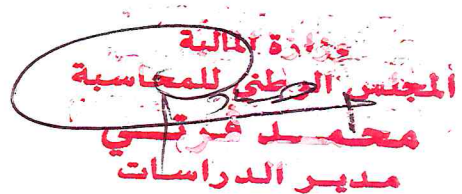 وزارة المالية
المجلس الوطني للمحاسبة
محمد فوتي
مدير الدراسات